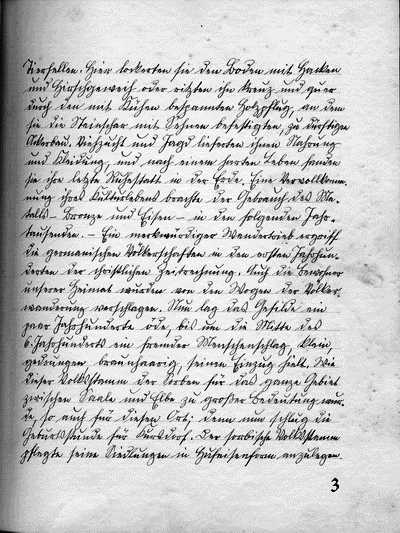 Tierfellen. Hier lockerten sie den Boden mit Hacken
und Hirschgeweih oder ritzten ihn kreuz und quer
durch den mit Kühen bespannten Holzpflug, an dem
sie die Steinschar mit Sehnen befestigten, zu dürftigem
Ackerbau. Viehzucht und Jagd lieferten ihnen Nahrung
und Kleidung, und nach einem harten Leben fanden
sie ihre letzte Ruhestatt in der Erde. Eine Vervollkomm-
nung ihres Kulturlebens brachte der Gebrauch des Me-
talls – Bronze und Eisen – in den folgenden Jahr-
tausenden. – Ein merkwürdiger Wandertrieb ergriff
die germanischen Völkerschaften in den ersten Jahrhun-
derten der christlichen Zeitrechnung. Auch die Bewohner
unserer Heimat wurden von den Wogen der Völker-
wanderung verschlagen. Nun lag das Gefilde ein
paar Jahrhunderte öde, bis um die Mitte des
6. Jahrhunderts ein fremder Menschenschlag, klein
gedrungen, braunhaarig, seinen Einzug hielt. Wie
dieser Volksstamm der Sorben für das ganze Gebiet
zwischen Saale und Elbe zu großer Bedeutung wur-
de, so auch für diesen Ort; denn nun schlug die
Geburtsstunde für Kursdorf. Der sorbische Volksstamm
pflegte seine Siedlungen in Hufeisenform anzulegen
3